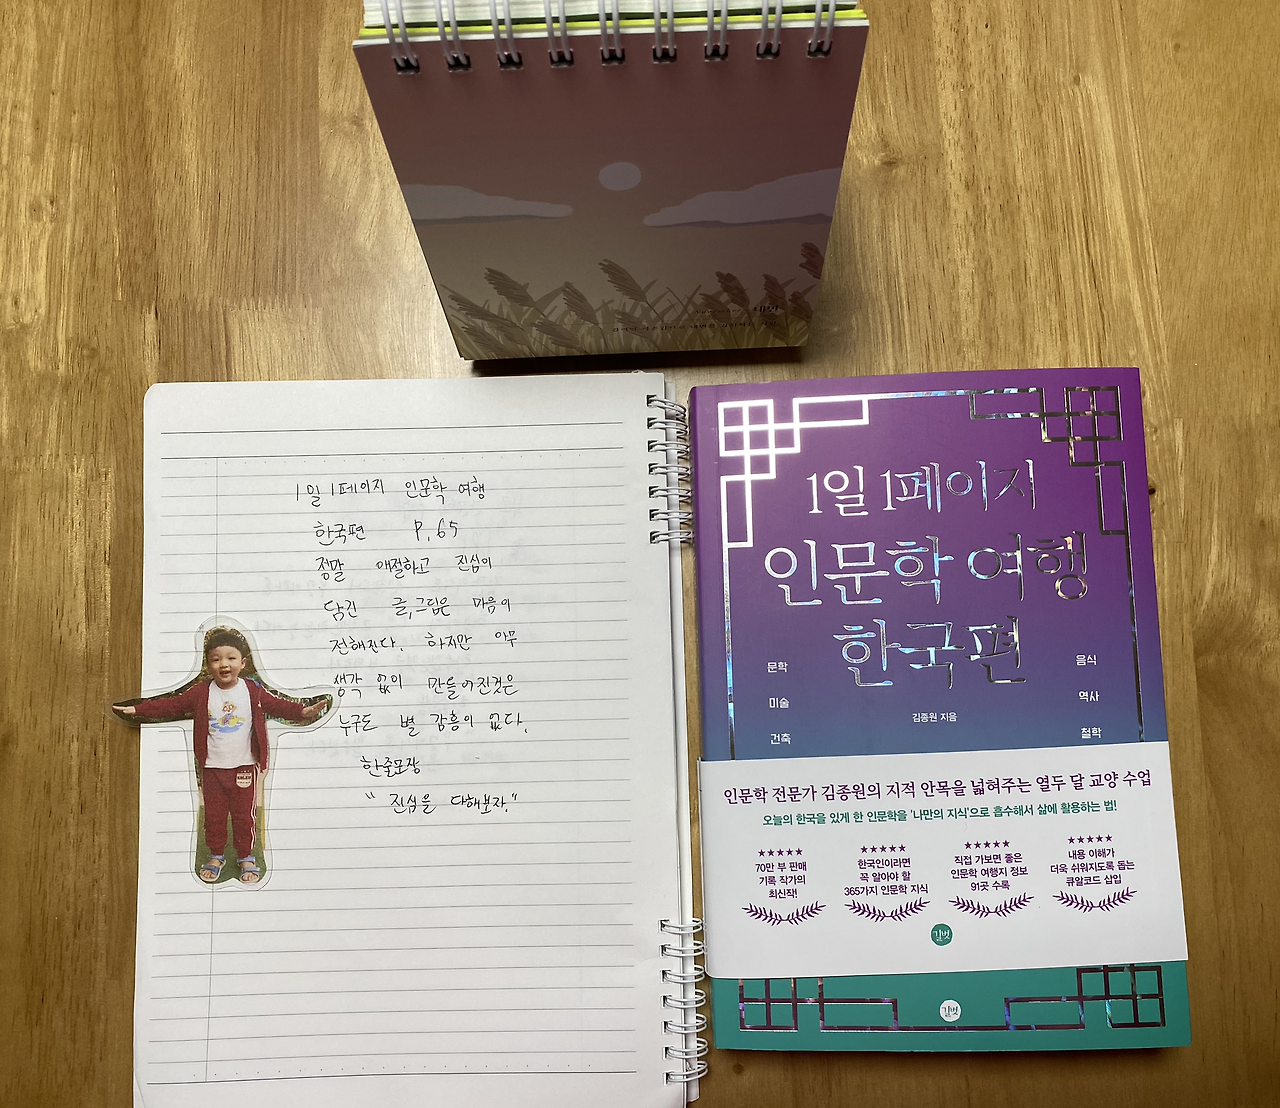 1일 1페이지 인문학 여행
한국편 P.65
정말 애절하고 진심이
담긴 글,그림은 마음이
전해진다. 하지만 아무
생각 없이 만들어진것은
누구도 별 감흥이 없다.
한줄문장
“진심을 다해보자.”
1일 1페이지
인문학 여행
한국편
문학
미술
건축
음식
역사
철학
김종원 지음
인문학 전문가 김종원의 지적 안목을 넓혀주는 열두 달 교양 수업
오늘의 한국을 있게 한 인문학을 '나만의 지식'으로 흡수해서 삶에 활용하는 법!
★★★★★
70만 부 판매
기록 작가의
최신작!
★★★★★
한국인이라면
꼭 알아야 할
365가지 인문학 지식
★★★★★
직접 가보면 좋은
인문학 여행지 정보
91곳 수록
★★★★★
내용 이해가
더욱 쉬워지도록 돕는
큐알코드 삽입
길벗
길벗